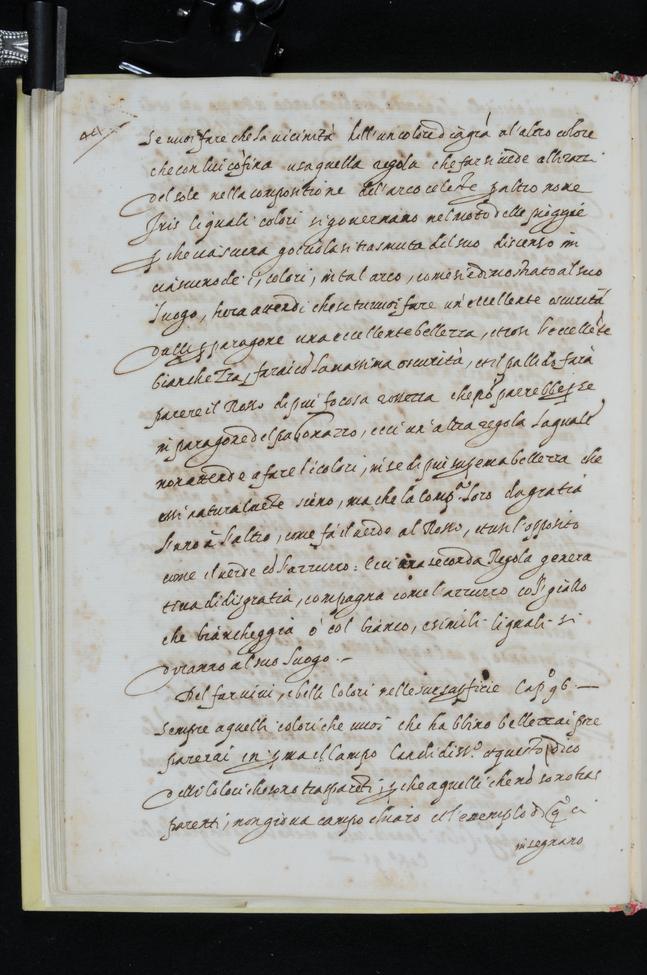 Se uuoi fare che la uicinità dell'un colore dia grã al altro colore
che con lui cõfina usa quella regola che far si uede alli razzi
del sole nella compositione dell'arco celeste p altro nome
Iris li quali colori si gouernano nel moto delle pioggie
p che ciascuna gocciola si trasmuta del suo discenso in
ciascuno de i, colori, in tal arco, come si è dimostrato al suo
luogo, hora attendi che se tu uuoi fare un'eccellente oscurità
dalli p paragone una eccellente bellezza, et così l'eccellẽte
bianchezza, farai cõ la massima oscurità, et il pallido farà
parere il Rosso di più focosa rossezza che nõ parrebbe p se
in paragone del pabonazzo, ecci un'altra regola laquale
non attende a fare li colori, in se di più suprema bellezza che
essi naturalmẽte sieno, ma che la compª loro dia gratia
l'uno à l'altro, come fà il uerde al Rosso, et cusì l'opposito
come il uerde cõ l'azzurro: Ecci una seconda Regola genera
tiua di disgratia, compagna come l'azzurro cõ'l giallo
che biancheggia ò col bianco, e simili liquali si
diranno al suo luogo.-
Del far uiui, e belli colori nelle sue superficie Capº 96 —
Sempre a quelli colori che uuoi che habbino bellezza i pre
parerai in pma il Campo Candidissº et questo dico
delli Colori che sono trasparẽti, p che a quelli che nõ sono tras
parenti, non gioua campo chiaro et l'esempio di qº ci
insegnano